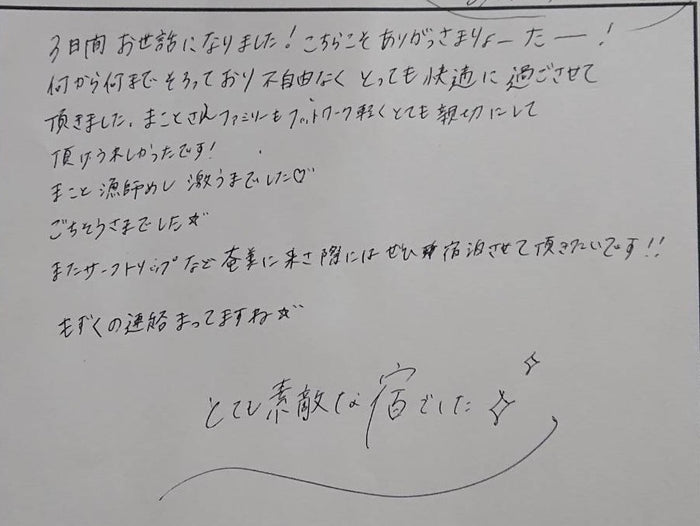 3日間 お世話になりました！こちらこそ ありがっさまりょーたー！
何から何まで そろっており 不自由なく とっても 快適に 過ごさせて
頂きました。まことさんファミリーも フットワーク軽く とても 親切にして
頂けうれしかったです！
まこと 漁師めし 激うまでした♡
ごちそうさまでした☆
またサーフトリップなど 奄美に来さ際には ぜひ 宿泊させて 頂きたいです！！
もずくの連絡 まってますね☆
とても 素敵な 宿でした